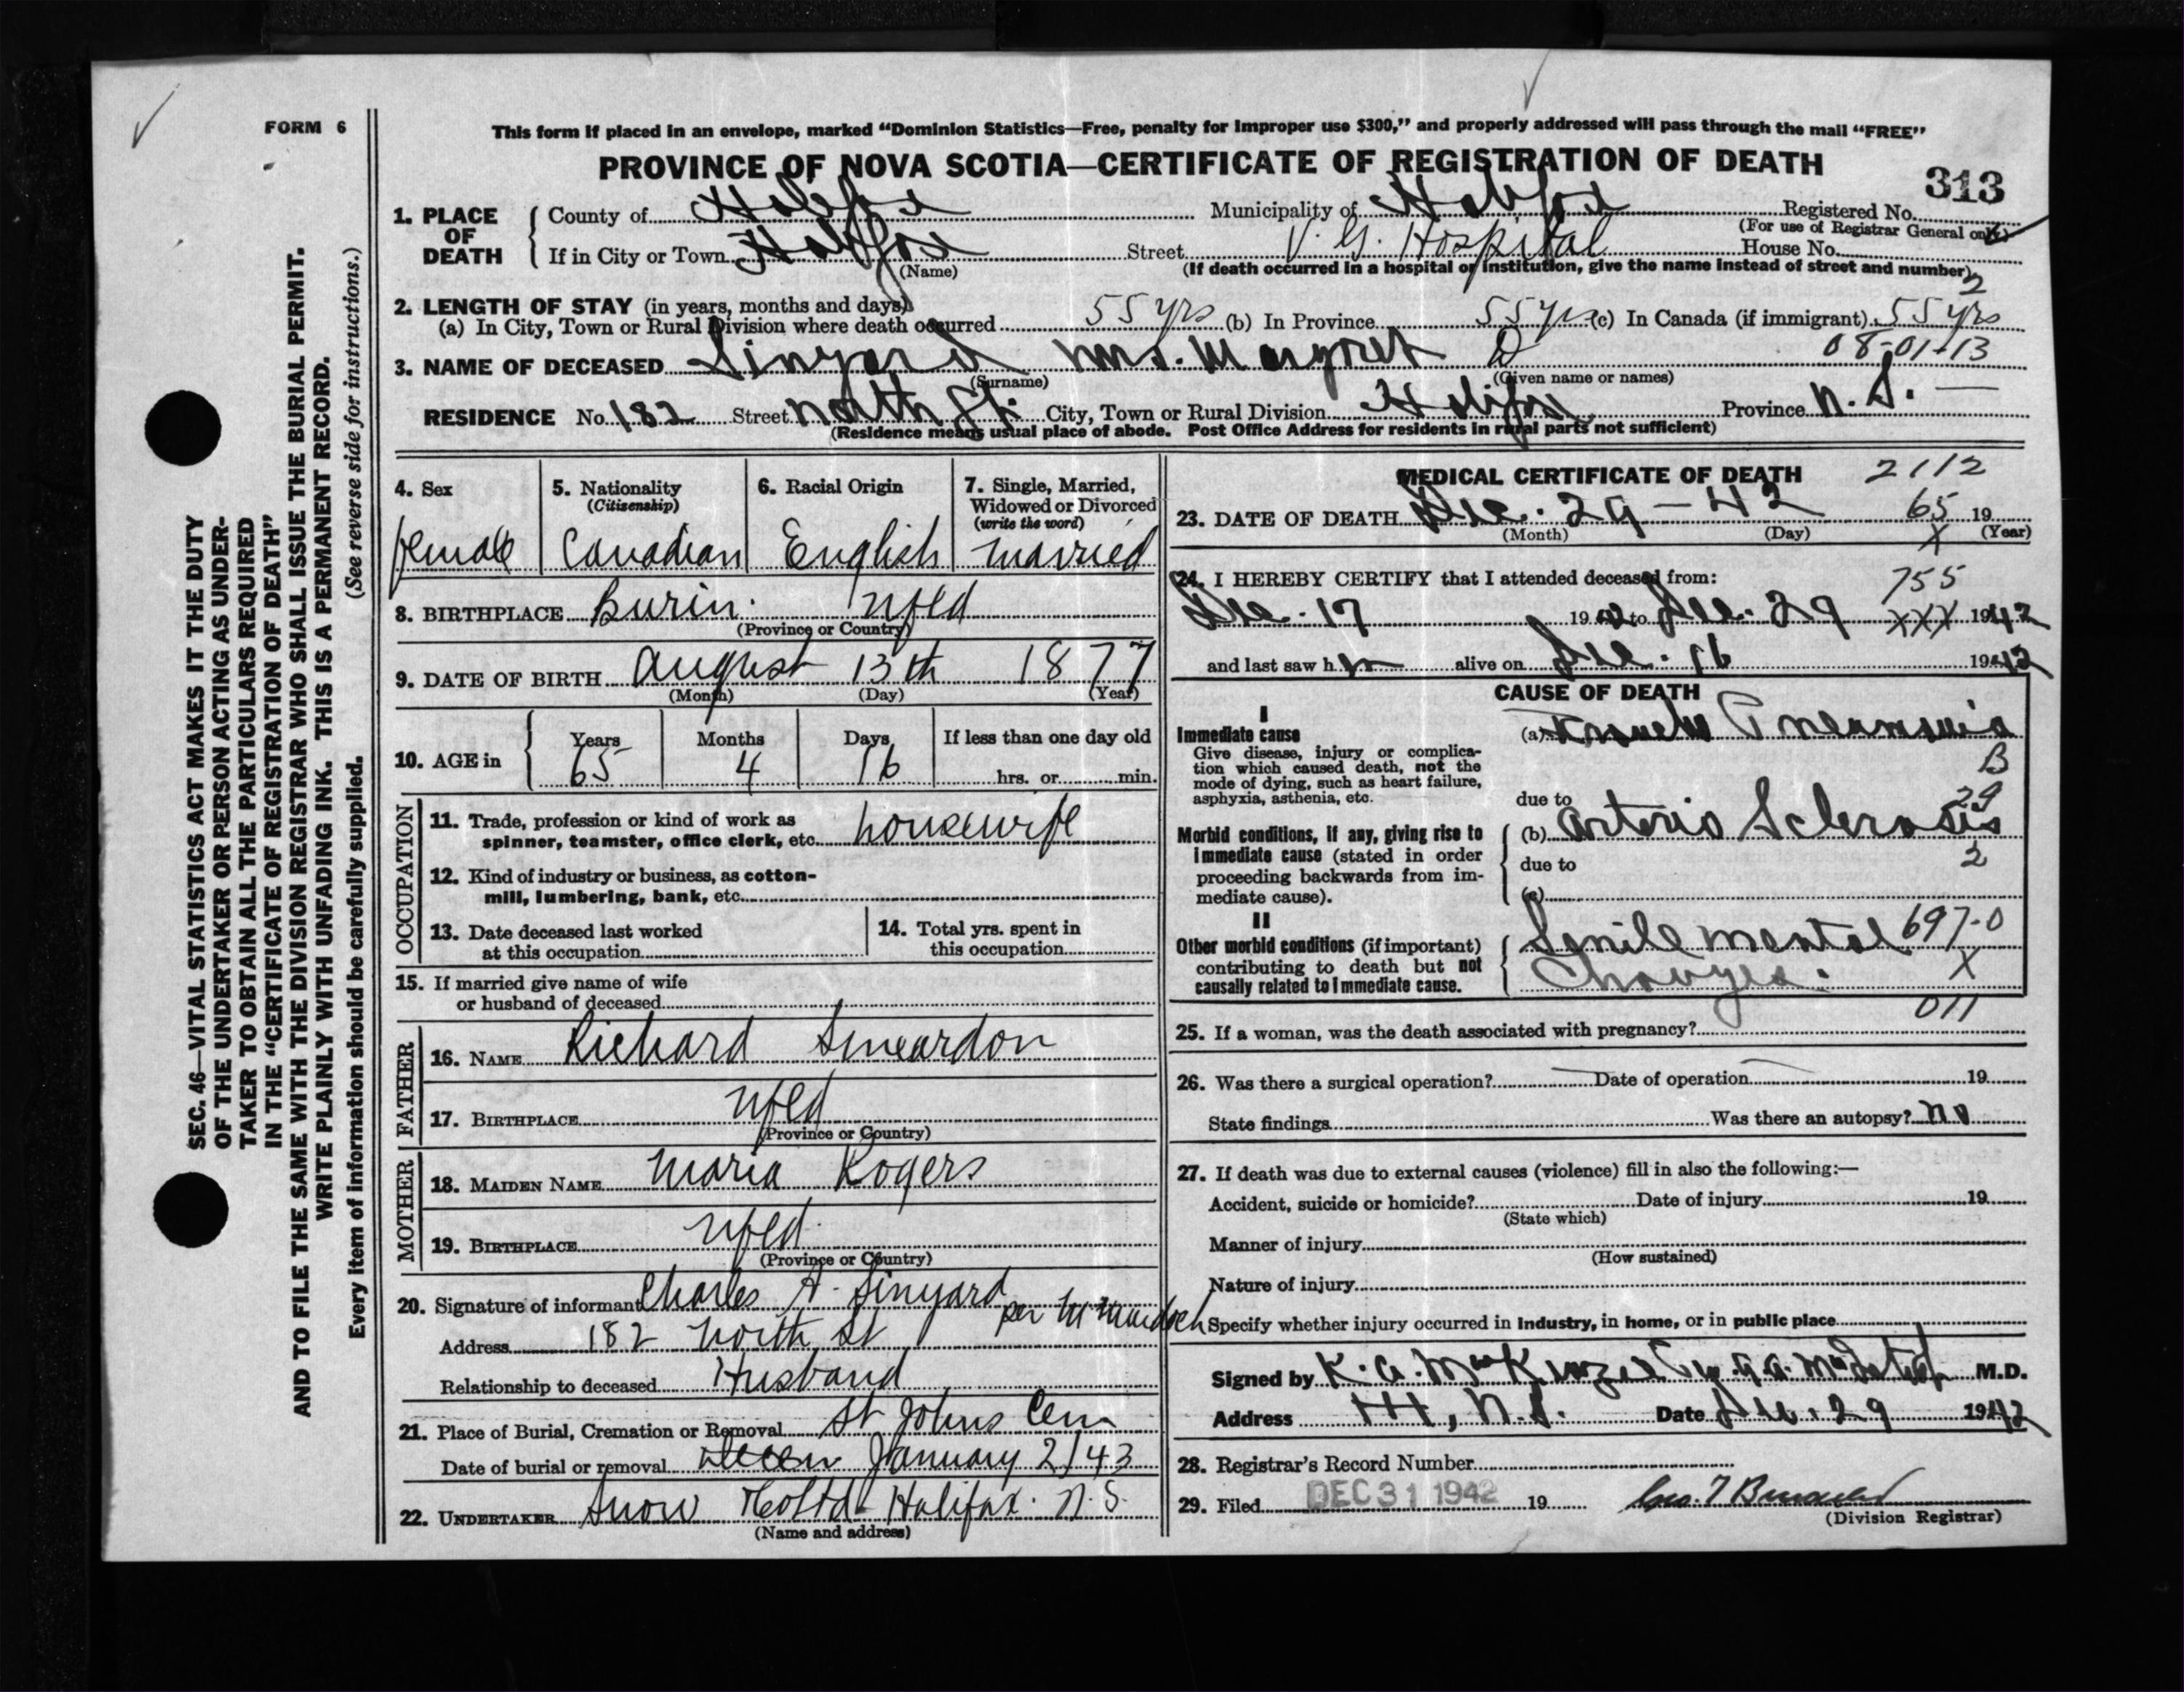 FORM 6
This form if placed in an envelope, marked “Dominion Statistics—Free, penalty for improper use $300,” and properly addressed will pass through the mail “FREE”
PROVINCE OF NOVA SCOTIA—CERTIFICATE OF REGISTRATION OF DEATH
313
1. PLACE OF DEATH { County of Halifax Municipality of Halifax Registered No.
(For use of Registrar General only)
If in City or Town Halifax Street V. G. Hospital House No.
(Name) (If death occurred in a hospital or institution, give the name instead of street and number)
2
2. LENGTH OF STAY (in years, months and days)
(a) In City, Town or Rural Division where death occurred 55 yrs (b) In Province 55 yrs (c) In Canada (if immigrant) 55 yrs
08-01-13
3. NAME OF DECEASED Sinyard Mrs. Margret D
(Surname) (Given name or names)
RESIDENCE No. 182 Street North St. City, Town or Rural Division Halifax Province N. S. —
(Residence means usual place of abode. Post Office Address for residents in rural parts not sufficient)
4. Sex 5. Nationality (Citizenship) 6. Racial Origin 7. Single, Married, Widowed or Divorced (write the word)
female Canadian English married
8. BIRTHPLACE Burin. Nfld
(Province or Country)
9. DATE OF BIRTH August 13th 1877
(Month) (Day) (Year)
10. AGE in { Years Months Days If less than one day old
65 4 16 hrs. or min.
OCCUPATION
11. Trade, profession or kind of work as
spinner, teamster, office clerk, etc. housewife
12. Kind of industry or business, as cotton-
mill, lumbering, bank, etc.
13. Date deceased last worked
at this occupation
14. Total yrs. spent in
this occupation
15. If married give name of wife
or husband of deceased
FATHER
16. NAME Richard Smeardon
17. BIRTHPLACE Nfld
(Province or Country)
MOTHER
18. MAIDEN NAME Maria Rogers
19. BIRTHPLACE Nfld.
(Province or Country)
20. Signature of informant Charles A. Sinyard
per M Murdoch
Address 182 North St
Relationship to deceased Husband
21. Place of Burial, Cremation or Removal St Johns Cem
Date of burial or removal January 2/43
22. UNDERTAKER Snow & Co Ltd - Halifax. N. S.
(Name and address)
MEDICAL CERTIFICATE OF DEATH 2112
23. DATE OF DEATH Dec. 29 - 42 65 19
(Month) (Day) X (Year)
24. I HEREBY CERTIFY that I attended deceased from: 755
Dec. 17 1942 to Dec. 29 XXX 1942
and last saw h alive on Dec. 16 1942
CAUSE OF DEATH
I
Immediate cause
Give disease, injury or complica-
tion which caused death, not the
mode of dying, such as heart failure,
asphyxia, asthenia, etc.
(a) Pneumonia
B
29
due to
Morbid conditions, if any, giving rise to
immediate cause (stated in order
proceeding backwards from im-
mediate cause).
(b) Arterio Sclerosis
due to 2
(c)
II
Other morbid conditions (if important)
contributing to death but not
causally related to immediate cause.
Senile mental 697-0
Changes. X
011
25. If a woman, was the death associated with pregnancy?
26. Was there a surgical operation? — Date of operation — 19
State findings Was there an autopsy? no
27. If death was due to external causes (violence) fill in also the following:—
Accident, suicide or homicide? Date of injury 19
(State which)
Manner of injury
(How sustained)
Nature of injury
Specify whether injury occurred in industry, in home, or in public place
Signed by K. A. MacKenzie M.D.
Address Hfx, N. S. Date Dec. 29 1942
28. Registrar's Record Number
29. Filed DEC 31 1942 19
(Division Registrar)
SEC. 46—VITAL STATISTICS ACT MAKES IT THE DUTY
OF THE UNDERTAKER OR PERSON ACTING AS UNDER-
TAKER TO OBTAIN ALL THE PARTICULARS REQUIRED
IN THE “CERTIFICATE OF REGISTRATION OF DEATH”
AND TO FILE THE SAME WITH THE DIVISION REGISTRAR WHO SHALL ISSUE THE BURIAL PERMIT.
WRITE PLAINLY WITH UNFADING INK. THIS IS A PERMANENT RECORD.
Every item of information should be carefully supplied. (See reverse side for instructions.)